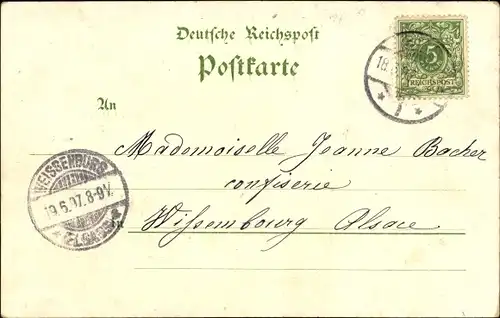 Deutsche Reichspost
Postkarte
5
REICHSPOST
18.
An
Mademoiselle Jeanne Bacher
confiserie
in Wissembourg Alsace
WEISSENBURG
19.6.97.8-9V.
* ELSASS *